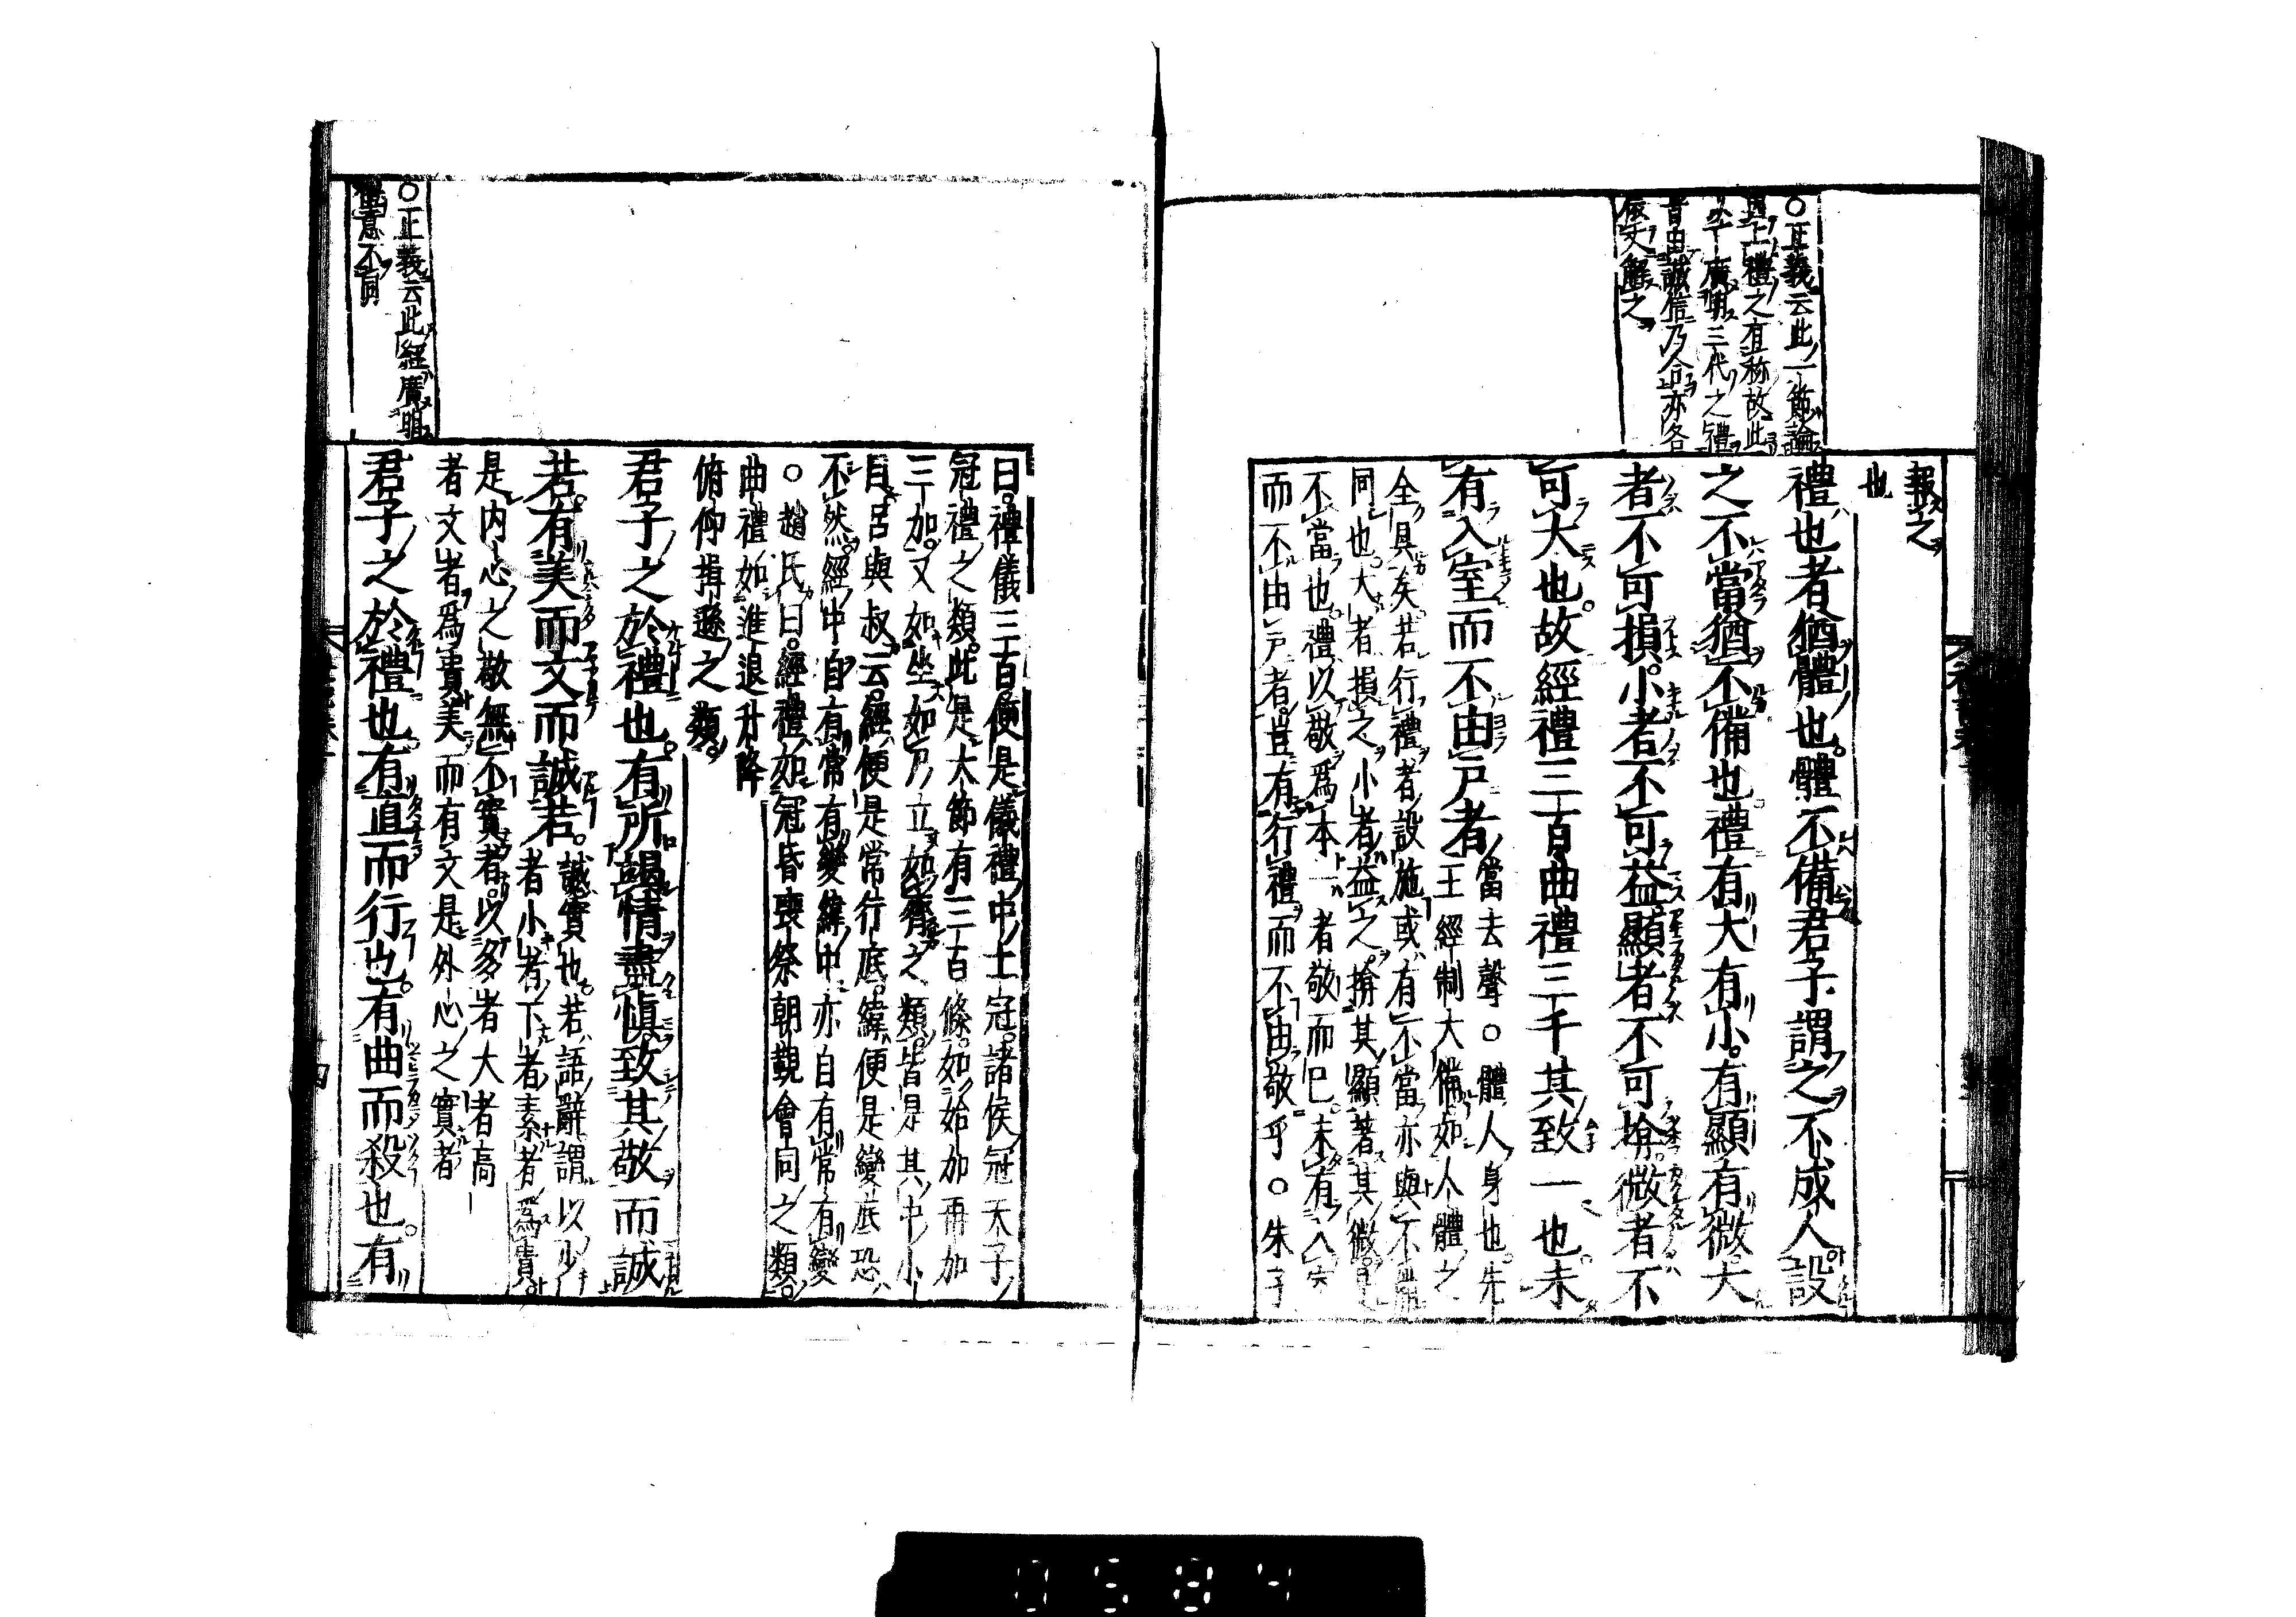 ○正義云此一節論
與上禮之有称故此
以下廣明三代之禮
皆由誠信乃合亦各
依文解之
報之
也
禮也者猶體也。體不備君子謂之不成人設
之不當猶不備也禮有大有小。有顯有微。大
者不可損。小者不可益顯者不可揜微者不
可大也。故經禮三百曲禮三千其致一也未
有入室而不由戶者
當去聲○體人身也。先
王經制大備如人體之
全具矣若行禮者設施或有不當亦與不備
同也。大者損之小者益之。揜其顯著其微是
不當也。禮以敬爲本一者敬而已。未有入室
而不由戶者。豈有行禮而不由敬乎。○朱子
曰。禮儀三百。便是儀禮中士冠。諸侯冠天子
冠禮之類。此是大節有三百條。如始加再加
三加。又如坐如尸立如齊之類。皆是其中小
目。呂與叔云。經便是常行底。緯便是變底恐
不然。經中自有常有變緯中亦自有常有變
○趙氏曰。經禮如冠昏喪祭朝覲會同之類。
曲禮如進退升降
俯仰揖遜之類。
君子之於禮也。有所竭情盡愼致其敬而誠
若。有美而文而誠若。
誠實也。若語辭謂以少
者小者下者素者爲貴
是内心之敬無不實者。以多者大者高
者文者爲貴美而有文是外心之實者
君子之於禮也有直而行也。有曲而殺也。有
○正義云此經廣明
禮意不同
0584